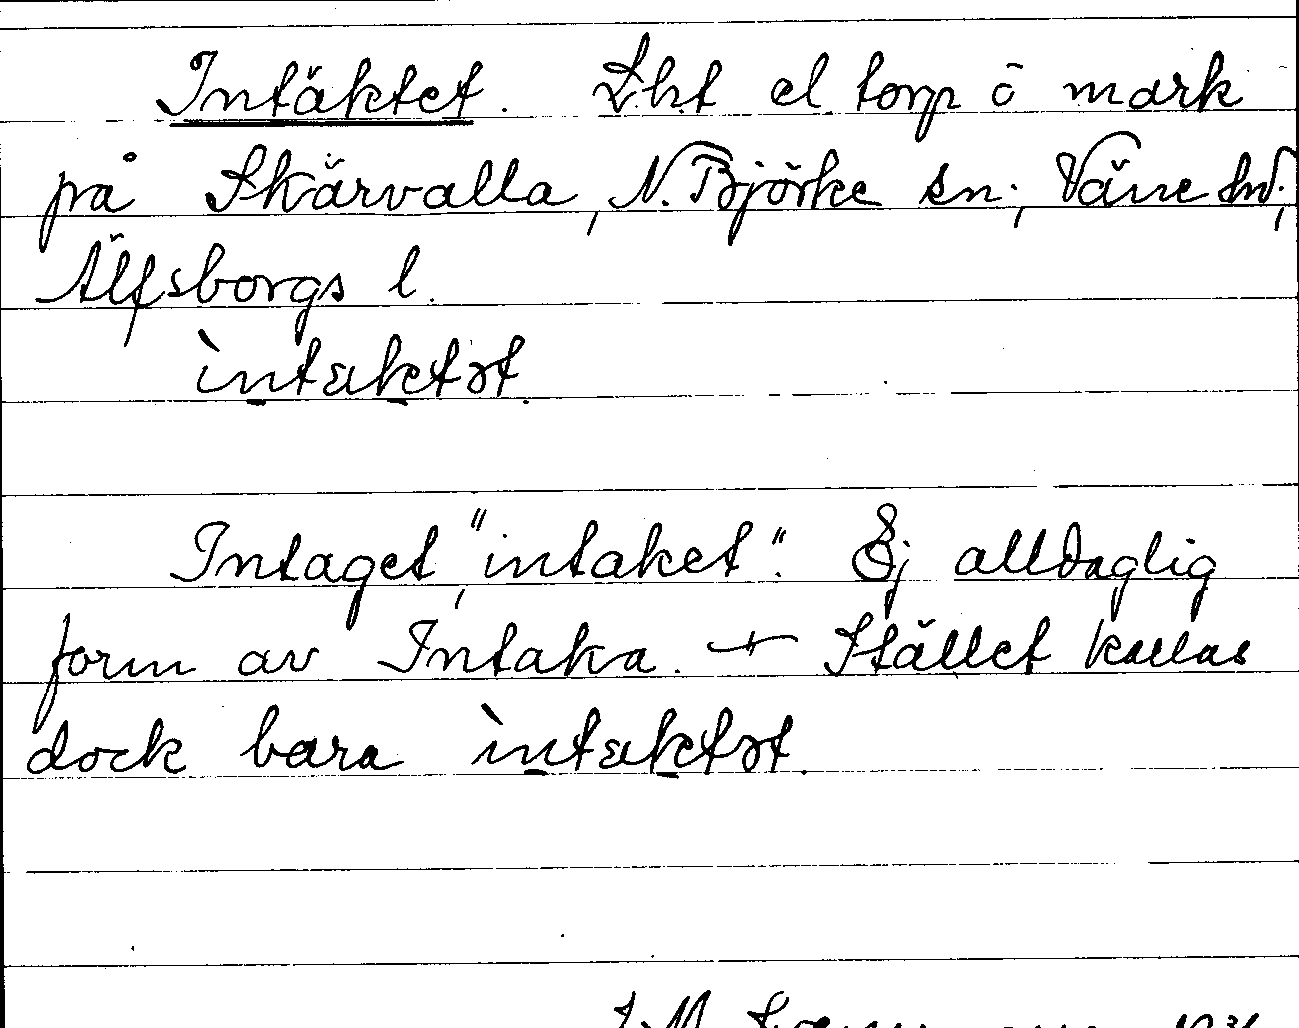 Intäktet. Lht el torp o mark
på Skärvalla, N. Björke sn; Väne hd;
Älfsborgs l.
ìntäktət.
Intaget, "intaket". Ej alldaglig
form av Intaka. + Stället kallas
dock bara ìntäktət.